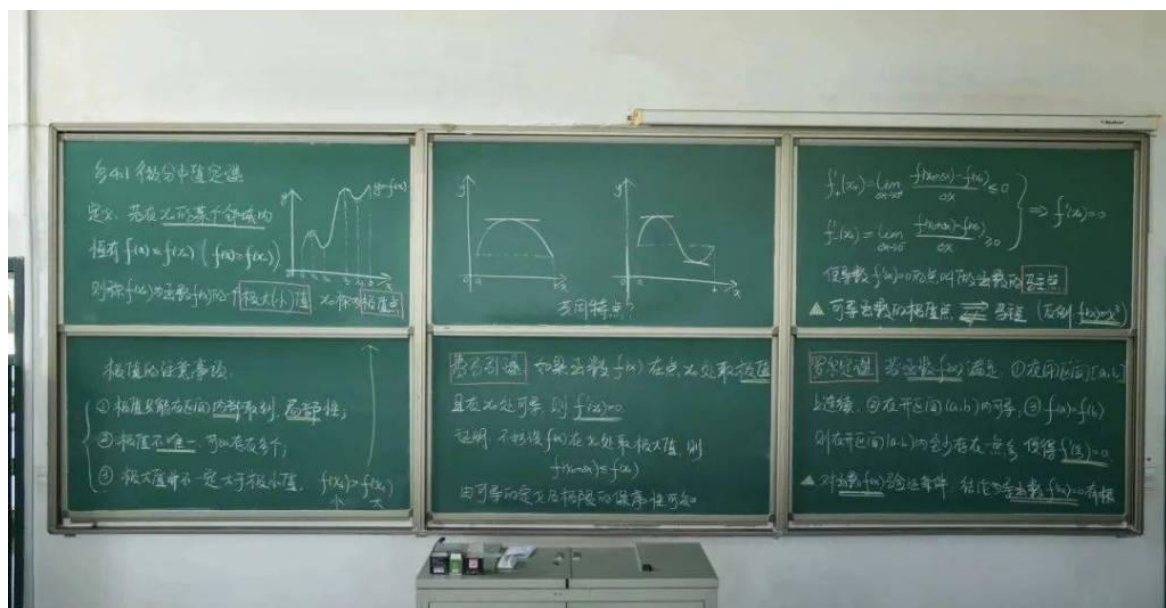 §4.1 微分中值定理
定义: 若在x₀的某个邻域内
恒有 f(x)≤f(x₀) (f(x)≥f(x₀))
则称f(x₀)为函数f(x)的一个极大(小)值 x₀称为极值点
y
y=f(x)
x
极值的注意事项:
① 极值只能在区间内部取到, 局部性;
② 极值不唯一, 可以存在多个;
③ 极大值并不一定大于极小值,
小 大
y
o a b x
y
o a b x
共同特点?
费马引理 如果函数 f(x) 在点x₀处取极值
且在x₀处可导, 则 f'(x₀)=0
证明: 不妨设f(x)在x₀处取极大值, 则
f(x₀+Δx)≤f(x₀)
由可导的定义及极限的保序性可知
f'₊(x₀)=lim Δx→0⁺ f(x₀+Δx)-f(x₀) / Δx ≤0
f'₋(x₀)=lim Δx→0⁻ f(x₀+Δx)-f(x₀) / Δx ≥0
⇒ f'(x₀)=0
使导数 f'(x)=0的点叫做函数的驻点
▲ 可导函数的极值点 ⇄ 驻点 (反例: f(x)=x³)
罗尔定理 若函数f(x)满足: ①在闭区间[a,b]
上连续, ②在开区间(a,b)内可导, ③ f(a)=f(b)
则在开区间(a,b)内至少存在一点ξ, 使得 f'(ξ)=0
▲ 对函数f(x)验证条件, 结论为导函数f'(x)=0有根